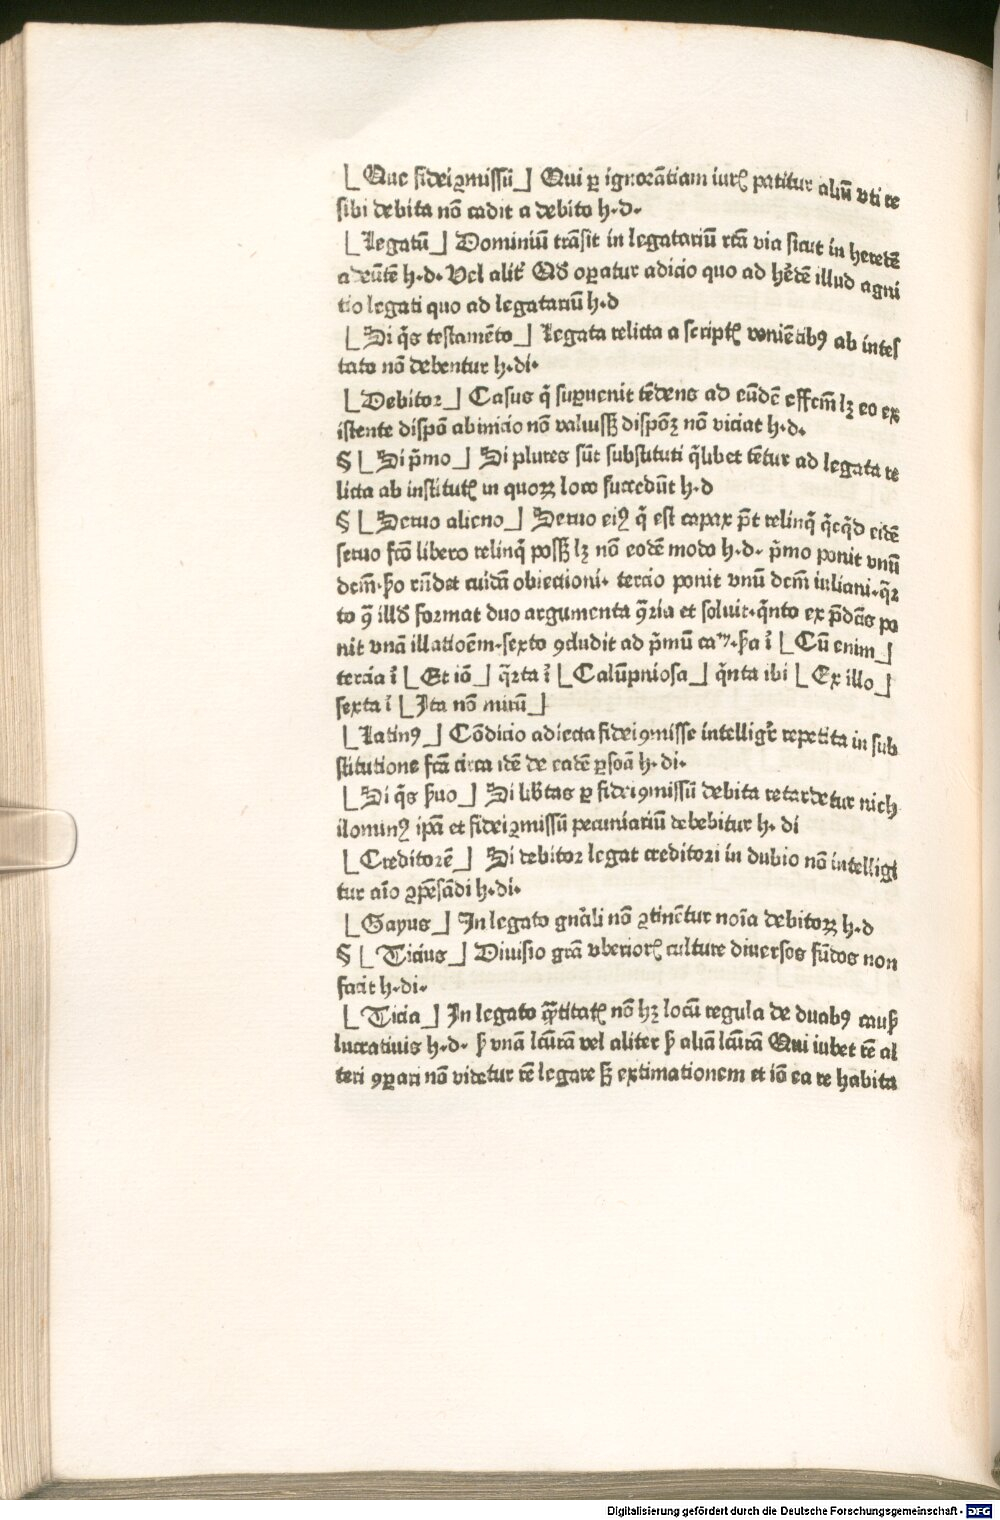 ⌊Que fideiꝯmissū⌋ Qui ꝑ ignorātiam iurꝭ patitur aliū vti re
sibi debita nō cadit a debito h.d.
⌊Legatū⌋ Dominiū trāsit in legatariū rcā via sicut in heredē
adeūtē h.d. Vel alit̄ Ad oꝑatur adicio quo ad hēdē illud agni
tio legati quo ad legatariū h.d
⌊Si q̄s testamēto⌋ Legata relicta a scriptꝭ veniētibꝯ ab intes
tato nō debentur h.di.
⌊Debitor⌋ Casus q̄ suꝑuenit tēdens ad eūdē effcm̄ lꝫ eo ex
istente dispō ab inicio nō valuissꝫ dispōꝫ nō viciat h.d.
§ ⌊Si p̄mo⌋ Si plures sūt substituti q̄libet tēt̄ur ad legata re
licta ab institutꝭ in quoꝝ loco succedūt h.d
§ ⌊Seruo alieno⌋ Seruo eiꝯ q̄ est capax p̄t relinq̄ q̄cq̄d eidē
seruo fcō libero relinq̄ possꝫ lꝫ nō eodē modo h.d. p̄mo ponit vnū
dcm̄. s̄o rn̄det cuidā obiectioni. tercio ponit vnū dcm̄ iuliani. q̄r
to ꝯ̄ illd̄ format duo argumenta ꝯ̄ria et soluit. q̄nto ex p̄dcīs po
nit vnā illatioēm. sexto ꝯcludit ad p̄mū ca. s̄a ī ⌊Cū enim⌋
tercia ī ⌊Et iō⌋ q̄rta ī ⌊Calūpniosa⌋ q̄nta ibi ⌊Ex illo⌋
sexta ī ⌊Ita nō mirū⌋
⌊Latinꝯ⌋ Cōdicio adiecta fideiꝯmisse intelligr̄ repetita in sub
stitutione fcā circa idē de eadē ꝑsoā h.di.
⌊Si q̄s s̄uo⌋ Si lib̄tas ꝑ fideiꝯmissū debita retardetur nich
ilominꝯ ip̄a et fideiꝯmissū pecuniariū debebitur h.di
⌊Creditorē⌋ Si debitor legat creditori in dubio nō intelligi
tur aīo ꝯpēsādi h.di.
⌊Gayus⌋ In legato gnāli nō ꝯtinētur noīa debitoꝝ h.d
§ ⌊Ticius⌋ Diuisio grā vberiorꝭ culture diuersos fūdos non
facit h.di.
⌊Ticia⌋ In legato q̄titatꝭ nō hꝫ locū regula de duabꝯ caus̄
lucratiuis h.d. s̄ vnā lcūrā vel aliter s̄ aliā lcūrā Qui iubet rē al
teri ꝯꝑari nō videtur rē legare sꝫ extimationem et iō ea re habita
Digitalisierung gefördert durch die Deutsche Forschungsgemeinschaft - DFG